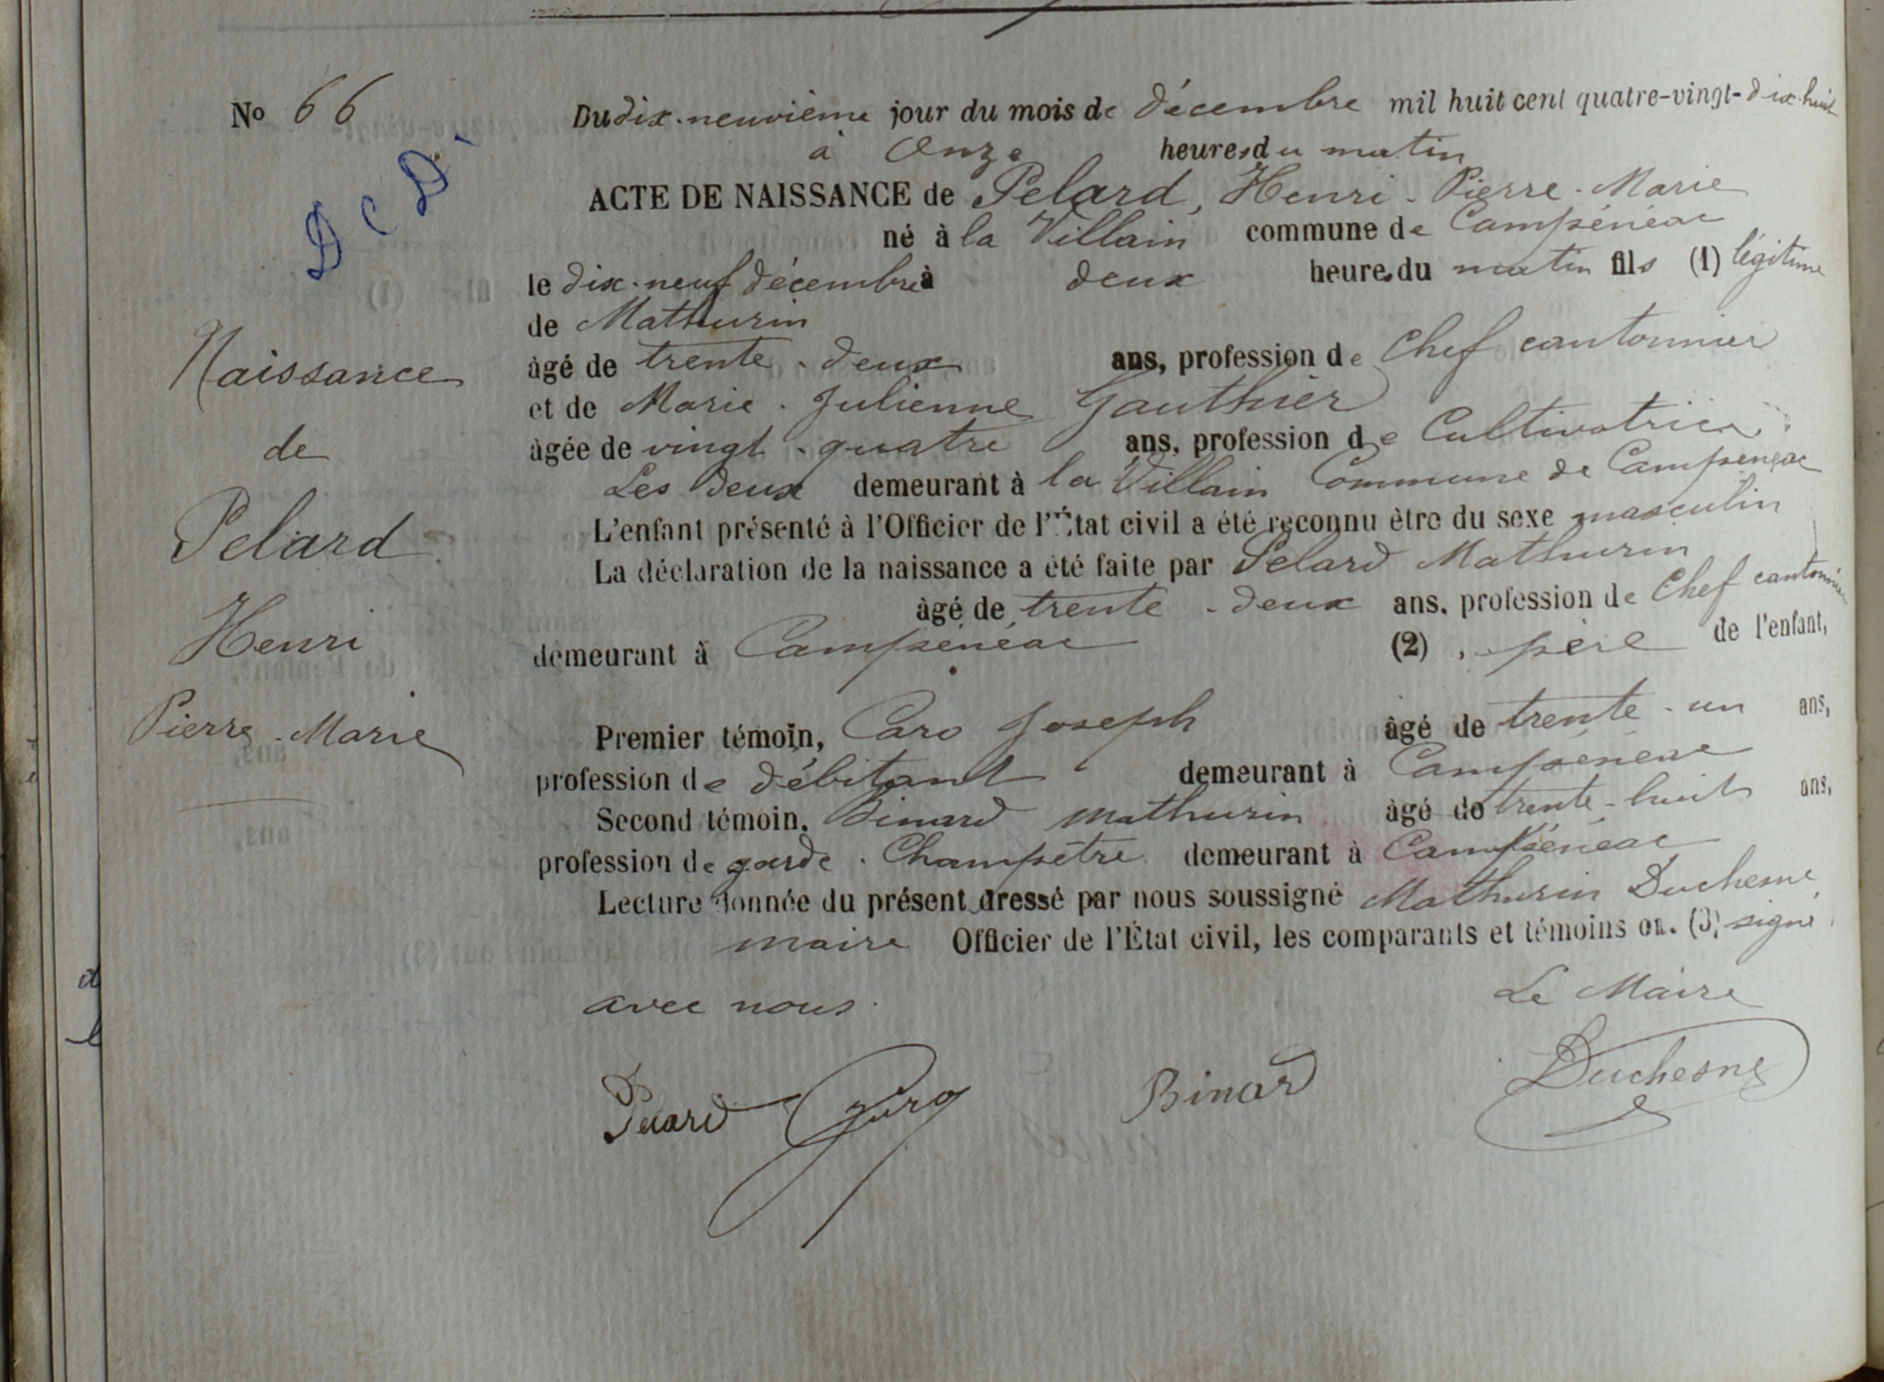 No 66
Du dix-neuvième jour du mois de décembre mil huit cent quatre-vingt-dix-huit
à Onze heures du matin
DCD
ACTE DE NAISSANCE de Pelard, Henri-Pierre-Marie
né à la Villain commune de Campénéac
le dix-neuf décembre à deux heures du matin fils (1) légitime
de Mathurin
Naissance
âgé de trente-deux ans, profession de Chef cantonnier
et de Marie-Julienne Gauthier
de
âgée de vingt-quatre ans, profession de Cultivatrice
Les deux demeurant à la Villain Commune de Campénéac
Pelard
L'enfant présenté à l'Officier de l'État civil a été reconnu être du sexe masculin
La déclaration de la naissance a été faite par Pelard Mathurin
âgé de trente-deux ans, profession de Chef cantonnier
Henri
demeurant à Campénéac (2) père de l'enfant,
Pierre-Marie
Premier témoin, Caro Joseph âgé de trente-un ans,
profession de débitant demeurant à Campénéac
Second témoin, Binard Mathurin âgé de trente-huit ans,
profession de garde-Champêtre demeurant à Campénéac
Lecture donnée du présent dressé par nous soussigné Mathurin Duchesne,
maire Officier de l'État civil, les comparants et témoins ont (3) signé
avec nous.
Le Maire
Pelard Caro Binard Duchesne